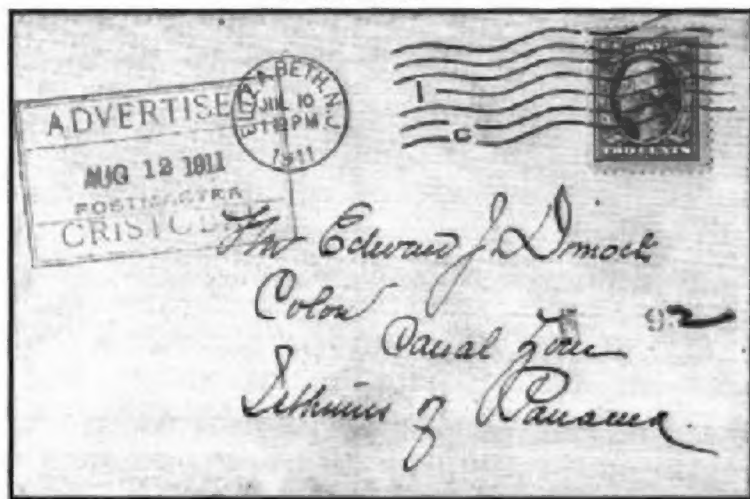 ADVERTISED
AUG 12 1911
POSTMASTER
CRISTOBAL
ELIZABETH, N.J.
JUL 10
12 PM
1911
1
C
TWO CENTS
Mr Edward J. Dimock
Colon
Canal Zone
92
Isthmus of Panama.